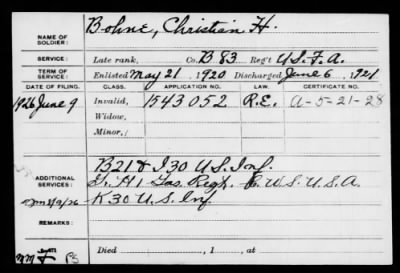 NAME OF SOLDIER: Bohne, Christian H.
SERVICE: Late rank, Co. B 83 Reg't U.S.F.A.
TERM OF SERVICE: Enlisted May 21 1920 Discharged June 6, 1921
DATE OF FILING. CLASS. APPLICATION NO. LAW. CERTIFICATE NO.
1926 June 9 Invalid, 1543052 R.E. a-5-21-28
Widow,
Minor,
ADDITIONAL SERVICES:
B 21 & I 30 U.S. Inf.
Tr. H 1 Gas Regt. C.W.S. U.S.A.
K 30 U.S. Inf
REMARKS:
Died , 1 , at